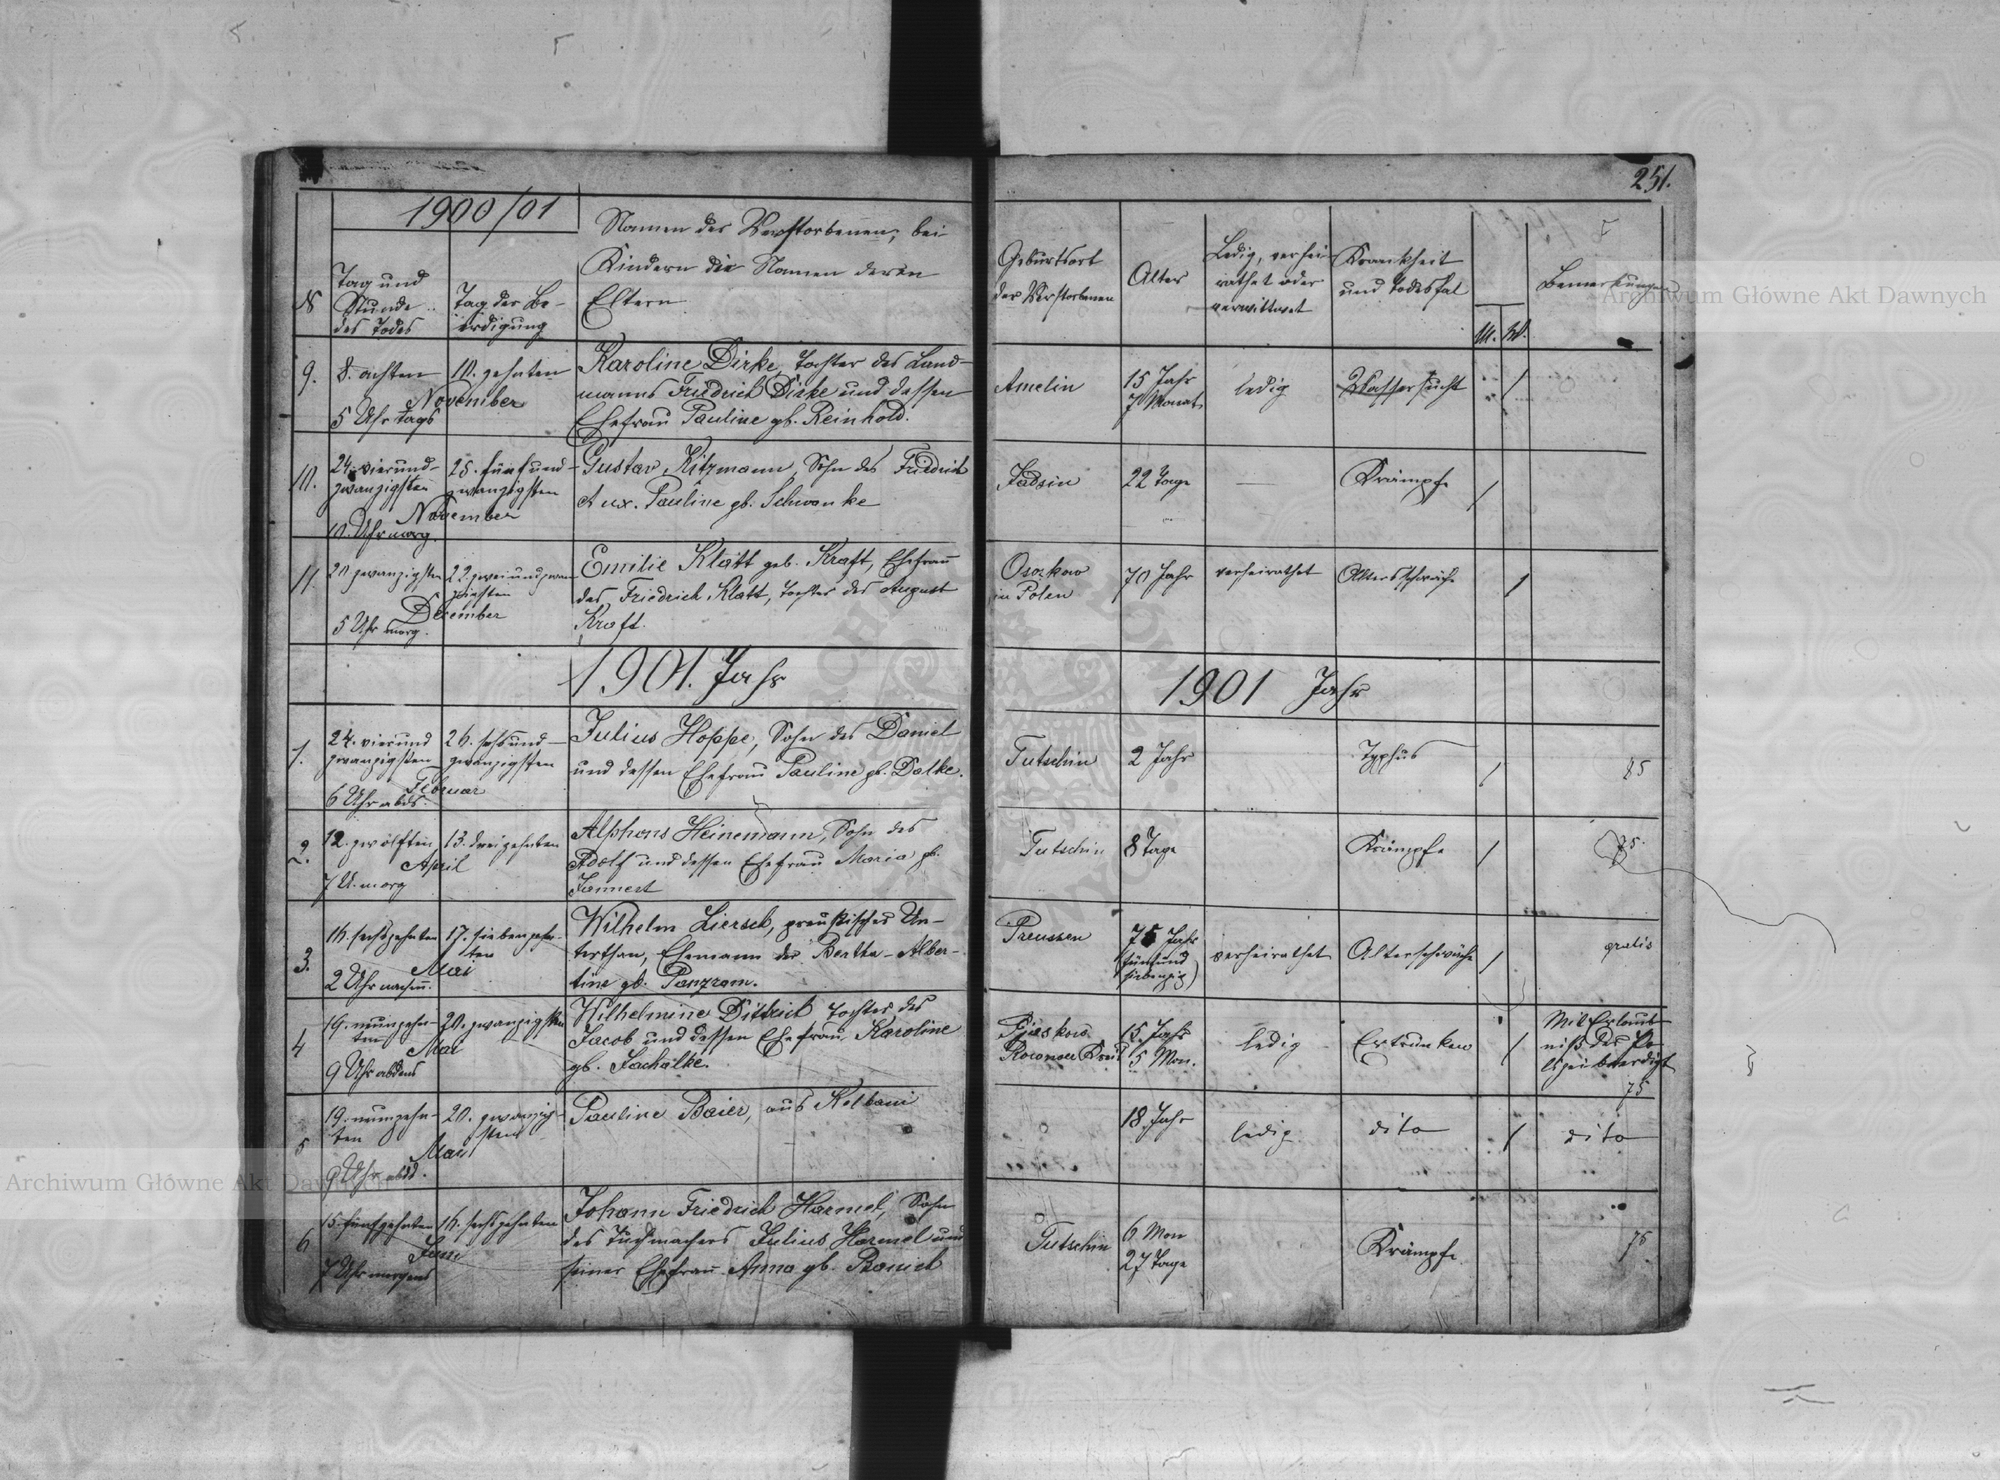 251.
1900/01
Namen des Verstorbenen; bei
Kindern die Namen deren
Eltern
№
Tag und
Stunde
des Todes
Tag der Be-
erdigung
Geburtsort
des Verstorbenen
Alter
Ledig, verhei-
rathet oder
verwittwet
Krankheit
und Todesfal
M. W.
Bemerkungen
9.
8. achten
5 Uhr tags
10. zehnten
November
Karoline Dirke, Tochter des Land-
manns Friedrich Dirke und dessen
Ehefrau Pauline gb. Reinhold.
Amelin
15 Jahr
7 Monat
ledig
Wassersucht
/
10.
24. vierund-
zwanzigsten
10 Uhr morg.
25. fünfund-
zwanzigsten
November
Gustav Kitzmann, Sohn des Friedrich
& ux. Pauline gb. Schwanke
22 Tage
—
Krämpfe
/
11.
20 zwanzigsten
5 Uhr morg.
22. zweiundzwan
zigsten
December
Emilie Klatt geb. Kraft, Ehefrau
des Friedrich Klatt, Tochter des August
Kraft.
Osorkow
in Polen
70 Jahr
verheirathet
Altersschwäche
/
1901. Jahr
1901 Jahr
1.
24. vierund
zwanzigsten
6 Uhr abds.
26. sechsund-
zwanzigsten
Februar
Julius Hoppe, Sohn des Daniel
und dessen Ehefrau Pauline gb. Datke.
Tutschin
2 Jahr
Typhus
/
85
2.
12. zwölften
7 U. morg
13. dreizehnten
April
Alphons Heinemann, Sohn des
Adolf und dessen Ehefrau Maria gb.
Jannert
Tutschin
8 Tage
Krämpfe
/
3.
16. sechszehnten
2 Uhr nachm.
17. siebenzehn-
ten
Mai
Wilhelm Liersch, preußischer Un-
terthan, Ehemann der Bertha-Alber-
tine gb. Panzram.
Preussen
75 Jahr
(fünfund
siebenzig)
verheirathet
Altersschwäche
/
gratis
4
19. neunzehn-
ten
9 Uhr abends
20. zwanzigsten
Mai
Wilhelmine Dittrich Tochter des
Jacob und dessen Ehefrau Karoline
gb. Jachalke.
Rownoer Kreis
15 Jahr
5 Mon.
ledig
Ertrunken
/
Mit Erlaub
niß der Po-
lizei beerdigt
75
5
19. neunzehn-
ten
9 Uhr abds.
20. zwanzig-
sten
Mai
Pauline Baier, aus Kolbani
18 Jahr
ledig
dito
/
dito
6
15. fünfzehnten
7 Uhr morgens
16. sechszehnten
Juni
Johann Friedrich Harmel, Sohn
des Tuchmachers Julius Harmel und
seiner Ehefrau Anna gb. Banich
Tutschin
6 Mon
27 Tage
Krämpfe
75
Archiwum Główne Akt Dawnych
Archiwum Główne Akt Dawnych